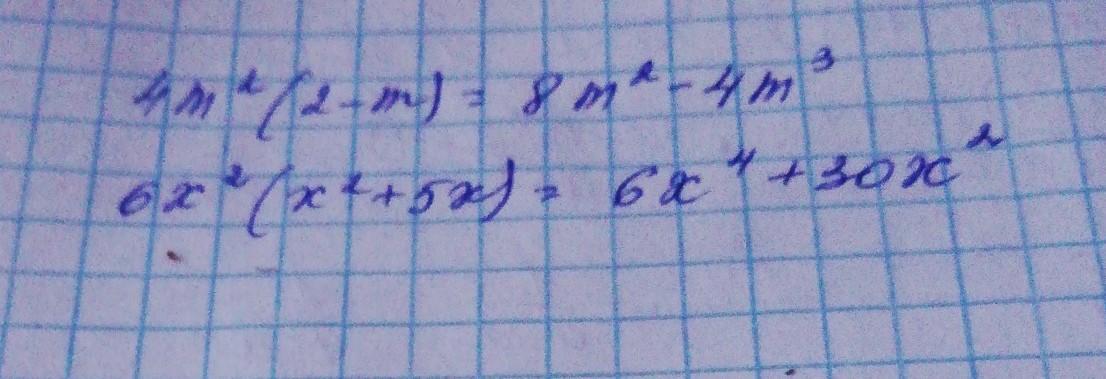 4m²(2-m)= 8m²-4m³
6x²(x²+5x)= 6x⁴+30x²